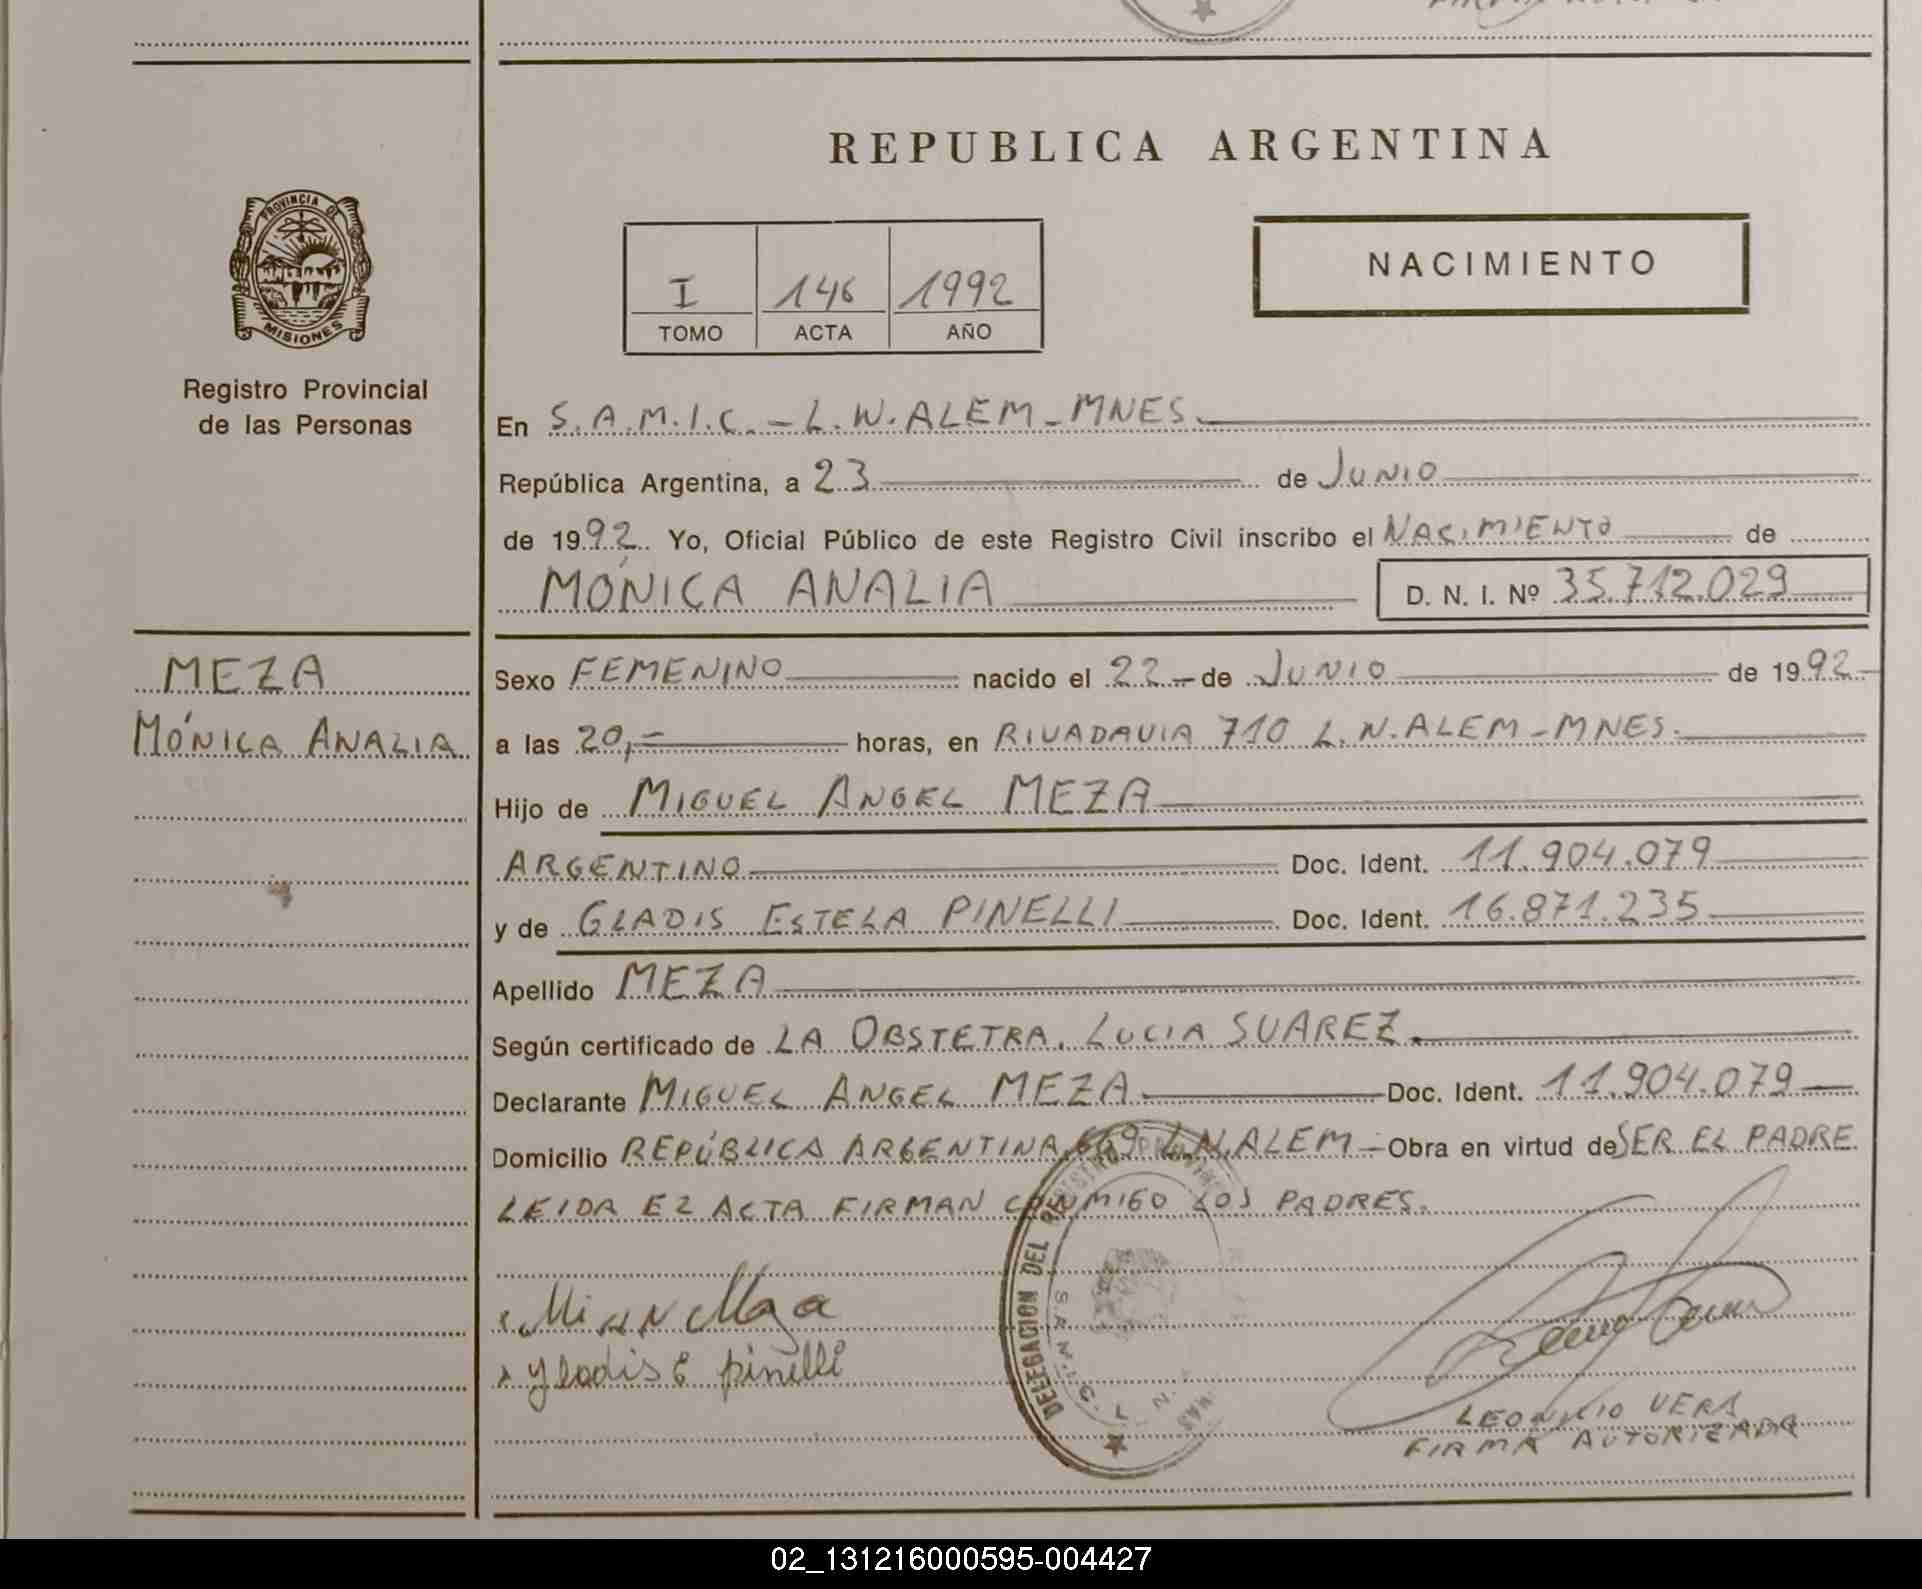 REPUBLICA ARGENTINA
PROVINCIA DE
MISIONES
Registro Provincial
de las Personas
I 146 1992
TOMO ACTA AÑO
NACIMIENTO
En S.A.M.I.C. - L.N.ALEM - MNES.
República Argentina, a 23 de JUNIO
de 1992. Yo, Oficial Público de este Registro Civil inscribo el NACIMIENTO de
MÓNICA ANALIA D. N. I. Nº 35.712.029
MEZA
MÓNICA ANALIA
Sexo FEMENINO nacido el 22 - de JUNIO de 1992 -
a las 20,- horas, en RIVADAVIA 710 L.N.ALEM - MNES.
Hijo de MIGUEL ANGEL MEZA
ARGENTINO Doc. Ident. 11.904.079
y de GLADIS ESTELA PINELLI Doc. Ident. 16.871.235
Apellido MEZA
Según certificado de LA OBSTETRA. LUCIA SUAREZ.
Declarante MIGUEL ANGEL MEZA Doc. Ident. 11.904.079
Domicilio REPÚBLICA ARGENTINA 669 L.N.ALEM - Obra en virtud de SER EL PADRE.
LEIDA EL ACTA FIRMAN CONMIGO LOS PADRES.
DELEGACION DEL REGISTRO
Gladis E pinelli
LEONICIO VERA
FIRMA AUTORIZADA
02_131216000595-004427